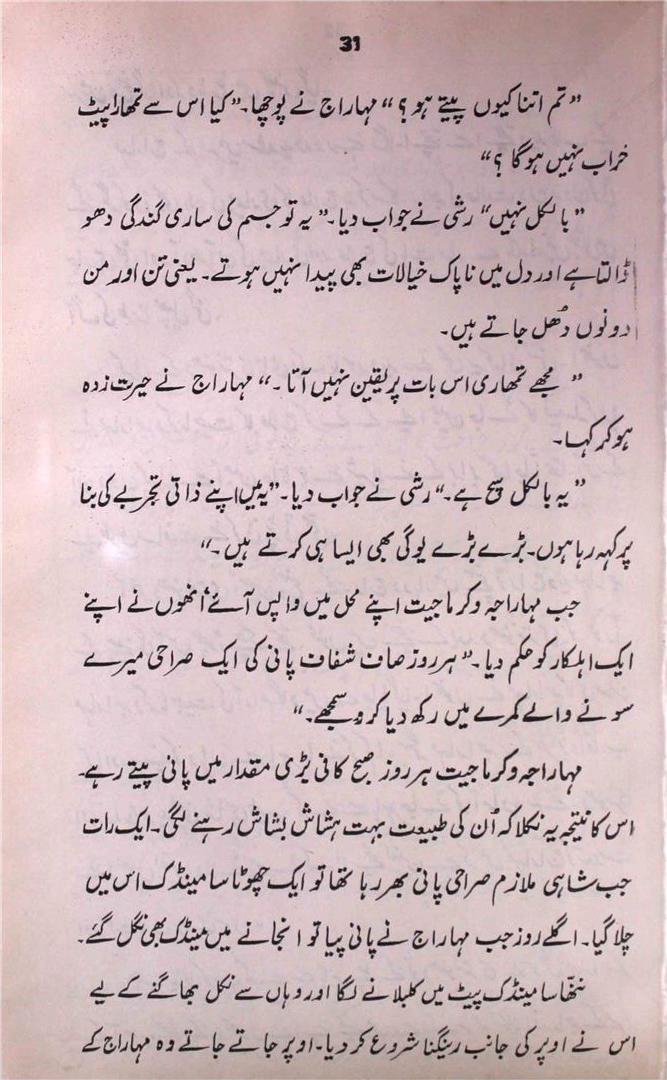 31
”تم اتنا کیوں پیتے ہو؟“ مہاراج نے پوچھا۔ ”کیا اس سے تمھارا پیٹ
خراب نہیں ہوگا؟“
”بالکل نہیں“ رشی نے جواب دیا۔ ”یہ تو جسم کی ساری گندگی دھو
ڈالتا ہے اور دل میں ناپاک خیالات بھی پیدا نہیں ہوتے۔ یعنی تن اور من
دونوں دُھل جاتے ہیں۔
”مجھے تمھاری اس بات پر یقین نہیں آتا۔“ مہاراج نے حیرت زدہ
ہو کر کہا۔
”یہ بالکل سچ ہے۔“ رشی نے جواب دیا۔ ”یہ میں اپنے ذاتی تجربے کی بنا
پر کہہ رہا ہوں۔ بڑے بڑے یوگی بھی ایسا ہی کرتے ہیں۔“
جب مہاراجہ وکرماجیت اپنے محل میں واپس آئے‘ اُنھوں نے اپنے
ایک اہلکار کو حکم دیا۔ ”ہر روز صاف شفاف پانی کی ایک صراحی میرے
سونے والے کمرے میں رکھ دیا کرو سمجھے۔“
مہاراجہ وکرماجیت ہر روز صبح کافی بڑی مقدار میں پانی پیتے رہے۔
اس کا نتیجہ یہ نکلا کہ اُن کی طبیعت بہت ہشاش بشاش رہنے لگی۔ ایک رات
جب شاہی ملازم صراحی پانی بھر رہا تھا تو ایک چھوٹا سا مینڈک اس میں
چلا گیا۔ اگلے روز جب مہاراج نے پانی پیا تو انجانے میں مینڈک بھی نگل گئے۔
ننھّا سا مینڈک پیٹ میں کلبلانے لگا اور وہاں سے نکل بھاگنے کے لیے
اس نے اوپر کی جانب رینگنا شروع کر دیا۔ اوپر جاتے جاتے وہ مہاراج کے